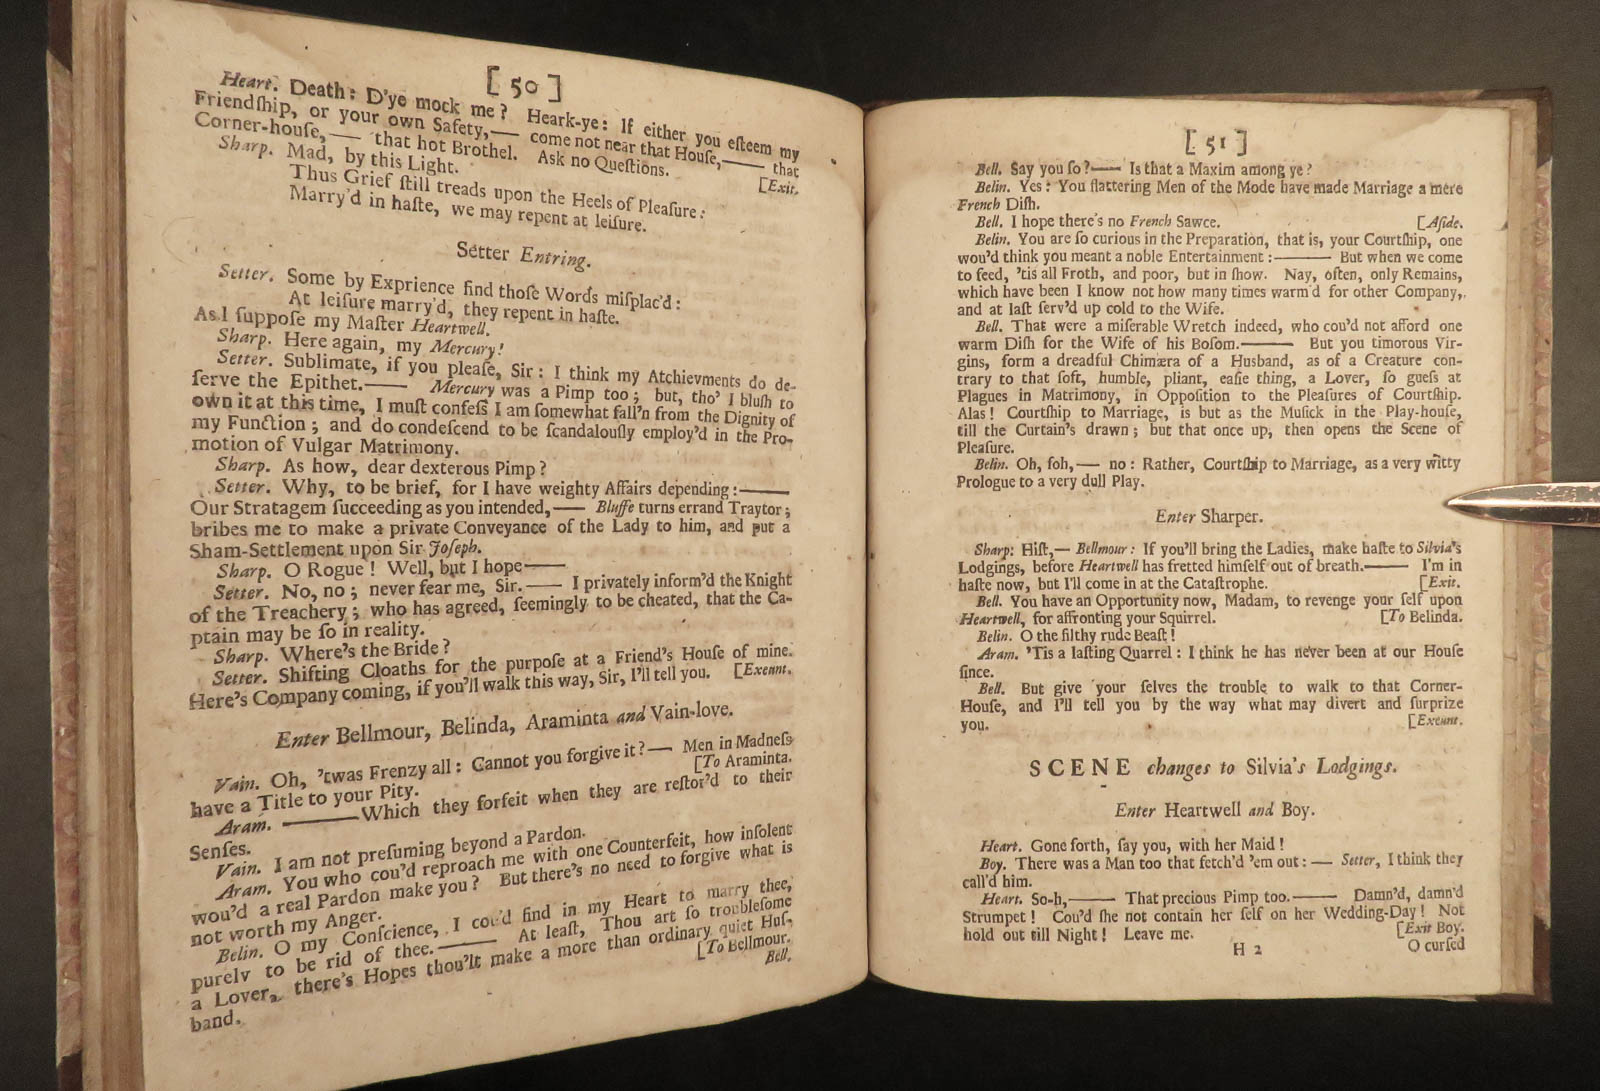 [ 50 ]
Heart. Death: D'ye mock me? Heark-ye: If either you eſteem my
Friendſhip, or your own Safety,— come not near that Houſe,— that
Corner-houſe,— that hot Brothel. Ask no Queſtions. [Exit.
Sharp. Mad, by this Light.
Thus Grief ſtill treads upon the Heels of Pleaſure:
Marry'd in haſte, we may repent at leiſure.
Setter Entring.
Setter. Some by Exprience find thoſe Words miſplac'd:
At leiſure marry'd, they repent in haſte.
As I ſuppoſe my Maſter Heartwell.
Sharp. Here again, my Mercury!
Setter. Sublimate, if you pleaſe, Sir: I think my Atchievments do de-
ſerve the Epithet.— Mercury was a Pimp too; but, tho' I bluſh to
own it at this time, I muſt confeſs I am ſomewhat fall'n from the Dignity of
my Function; and do condeſcend to be ſcandalouſly employ'd in the Pro-
motion of Vulgar Matrimony.
Sharp. As how, dear dexterous Pimp?
Setter. Why, to be brief, for I have weighty Affairs depending:—
Our Stratagem ſucceeding as you intended,— Bluffe turns errand Traytor;
bribes me to make a private Conveyance of the Lady to him, and put a
Sham-Settlement upon Sir Joſeph.
Sharp. O Rogue! Well, but I hope—
Setter. No, no; never fear me, Sir.— I privately inform'd the Knight
of the Treachery; who has agreed, ſeemingly to be cheated, that the Ca-
ptain may be ſo in reality.
Sharp. Where's the Bride?
Setter. Shifting Cloaths for the purpoſe at a Friend's Houſe of mine.
Here's Company coming, if you'll walk this way, Sir, I'll tell you. [Exeunt.
Enter Bellmour, Belinda, Araminta and Vain-love.
Vain. Oh, 'twas Frenzy all: Cannot you forgive it?— Men in Madneſs
have a Title to your Pity. [To Araminta.
Aram. —Which they forfeit when they are reſtor'd to their
Senſes.
Vain. I am not preſuming beyond a Pardon.
Aram. You who cou'd reproach me with one Counterfeit, how inſolent
wou'd a real Pardon make you? But there's no need to forgive what is
not worth my Anger.
Belin. O my Conſcience, I cou'd find in my Heart to marry thee,
purely to be rid of thee.— At leaſt, Thou art ſo troubleſome
a Lover, there's Hopes thou'lt make a more than ordinary quiet Huſ-
band. [To Bellmour.
Bell.
[ 51 ]
Bell. Say you ſo?— Is that a Maxim among ye?
Belin. Yes: You flattering Men of the Mode have made Marriage a mere
French Diſh.
Bell. I hope there's no French Sawce. [Aſide.
Belin. You are ſo curious in the Preparation, that is, your Courtſhip, one
wou'd think you meant a noble Entertainment:— But when we come
to feed, 'tis all Froth, and poor, but in ſhow. Nay, often, only Remains,
which have been I know not how many times warm'd for other Company,
and at laſt ſerv'd up cold to the Wife.
Bell. That were a miſerable Wretch indeed, who cou'd not afford one
warm Diſh for the Wife of his Boſom.— But you timorous Vir-
gins, form a dreadful Chimæra of a Husband, as of a Creature con-
trary to that ſoft, humble, pliant, eaſie thing, a Lover, ſo gueſs at
Plagues in Matrimony, in Oppoſition to the Pleaſures of Courtſhip.
Alas! Courtſhip to Marriage, is but as the Muſick in the Play-houſe,
till the Curtain's drawn; but that once up, then opens the Scene of
Pleaſure.
Belin. Oh, foh,— no: Rather, Courtſhip to Marriage, as a very witty
Prologue to a very dull Play.
Enter Sharper.
Sharp: Hiſt,— Bellmour: If you'll bring the Ladies, make haſte to Silvia's
Lodgings, before Heartwell has fretted himſelf out of breath.— I'm in
haſte now, but I'll come in at the Cataſtrophe. [Exit.
Bell. You have an Opportunity now, Madam, to revenge your ſelf upon
Heartwell, for affronting your Squirrel. [To Belinda.
Belin. O the filthy rude Beaſt!
Aram. 'Tis a laſting Quarrel: I think he has never been at our Houſe
ſince.
Bell. But give your ſelves the trouble to walk to that Corner-
Houſe, and I'll tell you by the way what may divert and ſurprize
you. [Exeunt.
SCENE changes to Silvia's Lodgings.
Enter Heartwell and Boy.
Heart. Gone forth, ſay you, with her Maid!
Boy. There was a Man too that fetch'd 'em out:— Setter, I think they
call'd him.
Heart. So-h,— That precious Pimp too.— Damn'd, damn'd
Strumpet! Cou'd ſhe not contain her ſelf on her Wedding-Day! Not
hold out till Night! Leave me. [Exit Boy.
H 2 O curſed